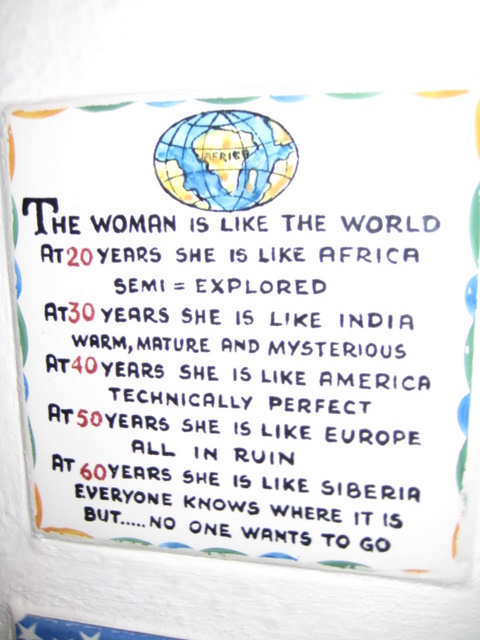 AFRICA
THE WOMAN IS LIKE THE WORLD
AT 20 YEARS SHE IS LIKE AFRICA
SEMI = EXPLORED
AT 30 YEARS SHE IS LIKE INDIA
WARM, MATURE AND MYSTERIOUS
AT 40 YEARS SHE IS LIKE AMERICA
TECHNICALLY PERFECT
AT 50 YEARS SHE IS LIKE EUROPE
ALL IN RUIN
AT 60 YEARS SHE IS LIKE SIBERIA
EVERYONE KNOWS WHERE IT IS
BUT.....NO ONE WANTS TO GO